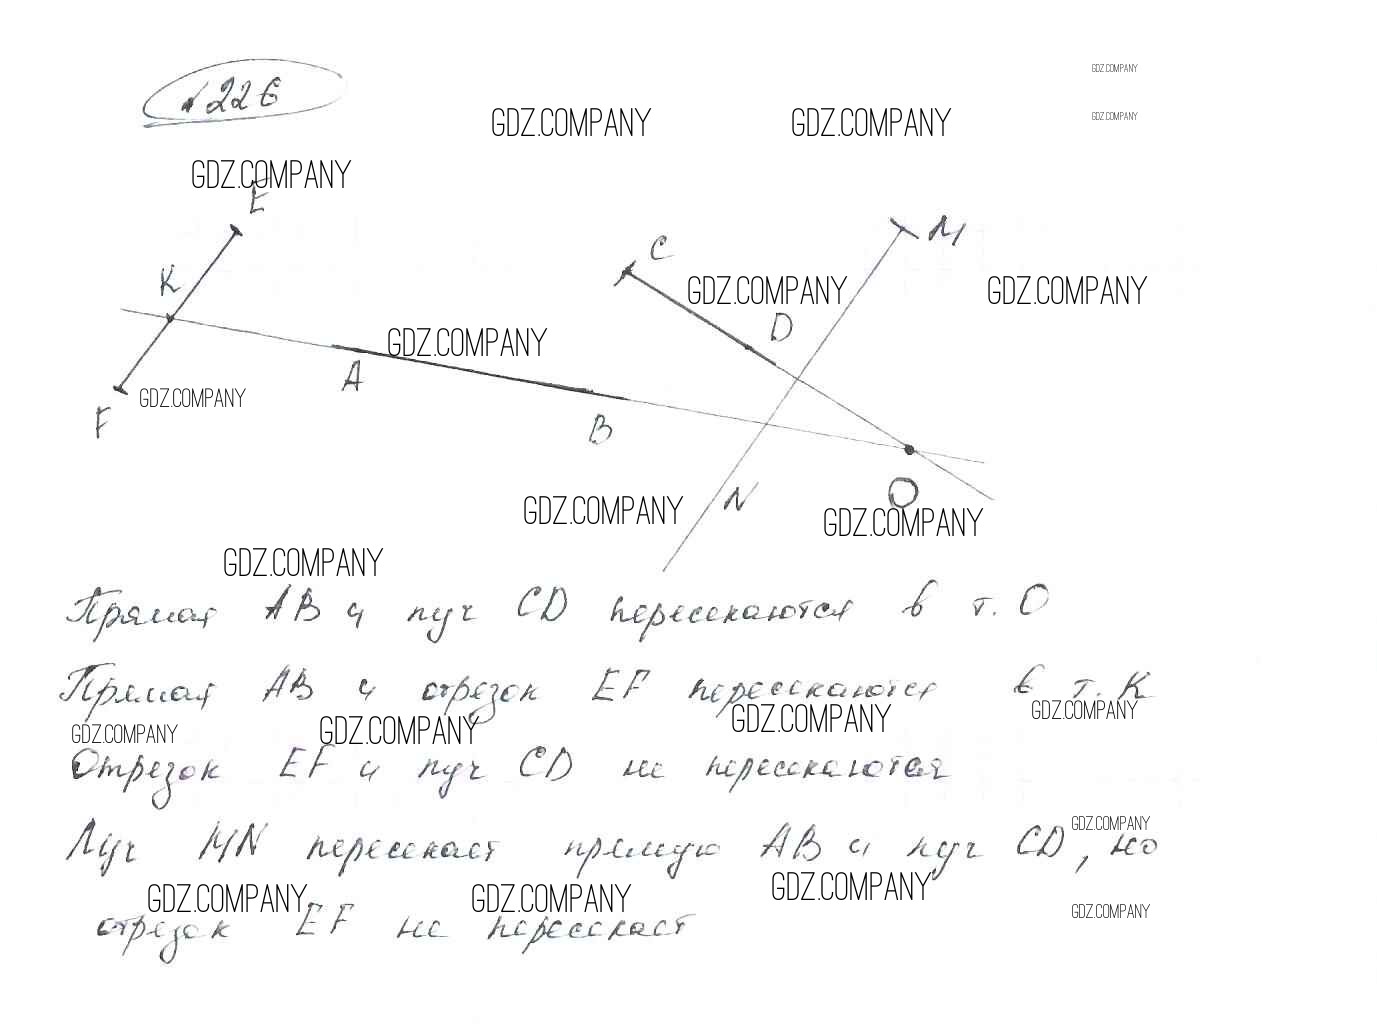 №226
GDZ.COMPANY
GDZ.COMPANY
GDZ.COMPANY
GDZ.COMPANY
GDZ.COMPANY
E
M
C
K
GDZ.COMPANY
GDZ.COMPANY
D
GDZ.COMPANY
A
GDZ.COMPANY
F
B
N
O
GDZ.COMPANY
GDZ.COMPANY
GDZ.COMPANY
Прямая AB и луч CD пересекаются в т. O
Прямая AB и отрезок EF пересекаются в т. K
GDZ.COMPANY
GDZ.COMPANY
GDZ.COMPANY
GDZ.COMPANY
Отрезок EF и луч CD не пересекаются
GDZ.COMPANY
Луч MN пересекает прямую AB и луч CD, но
GDZ.COMPANY
GDZ.COMPANY
GDZ.COMPANY
GDZ.COMPANY
отрезок EF не пересекает